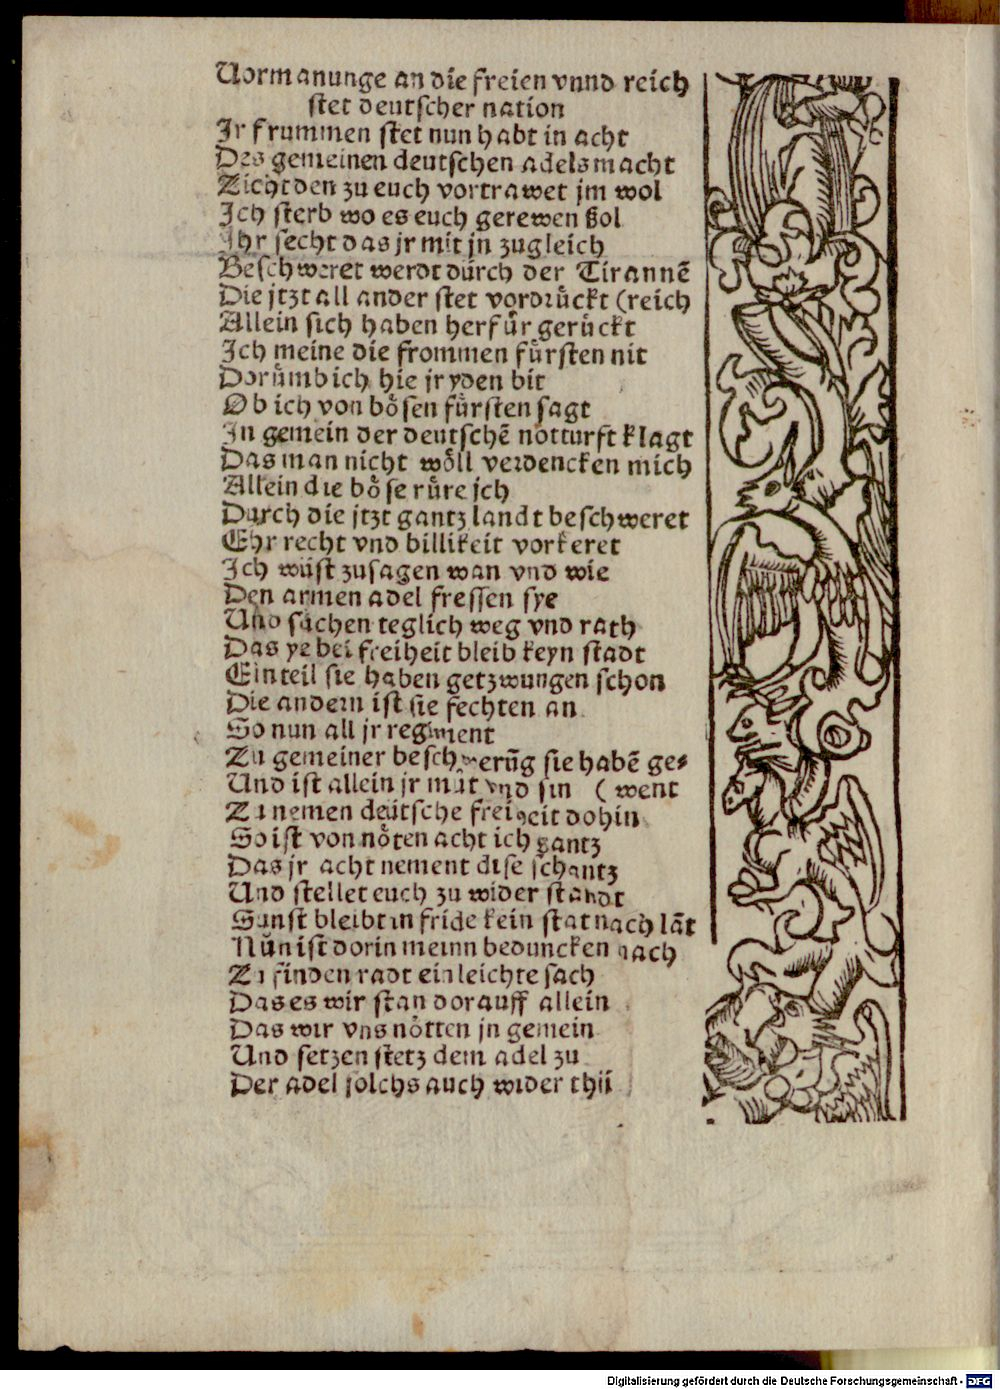 Vormanunge an die freien vnnd reich
stet deutscher nation
Ir frummen stet nun habt in acht
Des gemeinen deutschen adels macht
Zicht den zu euch vortrawet jm wol
Ich sterb wo es euch gerewen ßol
Ihr secht das jr mit jn zugleich
Beschweret werdt durch der Tirannē
Die jtzt all ander stet vordrückt (reich
Allein sich haben herfür gerückt
Ich meine die frommen fürsten nit
Dorümb ich hie jr yden bit
Ob ich von bösen fürsten sagt
In gemein der deutschē notturft klagt
Das man nicht wöll verdencken mich
Allein die böse rüre jch
Durch die jtzt gantz landt beschweret
Ehr recht vnd billikeit vorkeret
Ich wüst zusagen wan vnd wie
Den armen adel fressen sye
Vnd suchen teglich weg vnd rath
Das ye bei freiheit bleib keyn stadt
Ein teil sie haben getzwungen schon
Die andern ist sie fechten an
So nun all jr regiment
Zu gemeiner beschwerūg sie habē ge⸗
Vnd ist allein jr müt vnd sin ( went
Zu nemen deutsche freiheit dohin
So ist von nöten acht ich gantz
Das jr acht nement dise schantz
Vnd stellet euch zu wider standt
Sunst bleibt in fride kein stat nach lāt
Nün ist dorin meinn beduncken nach
Zu finden radt ein leichte sach
Das es wir stan dorauff allein
Das wir vns nötten jn gemein
Vnd setzen stetz dem adel zu
Der adel solchs auch wider thü
Digitalisierung gefördert durch die Deutsche Forschungsgemeinschaft - DFG